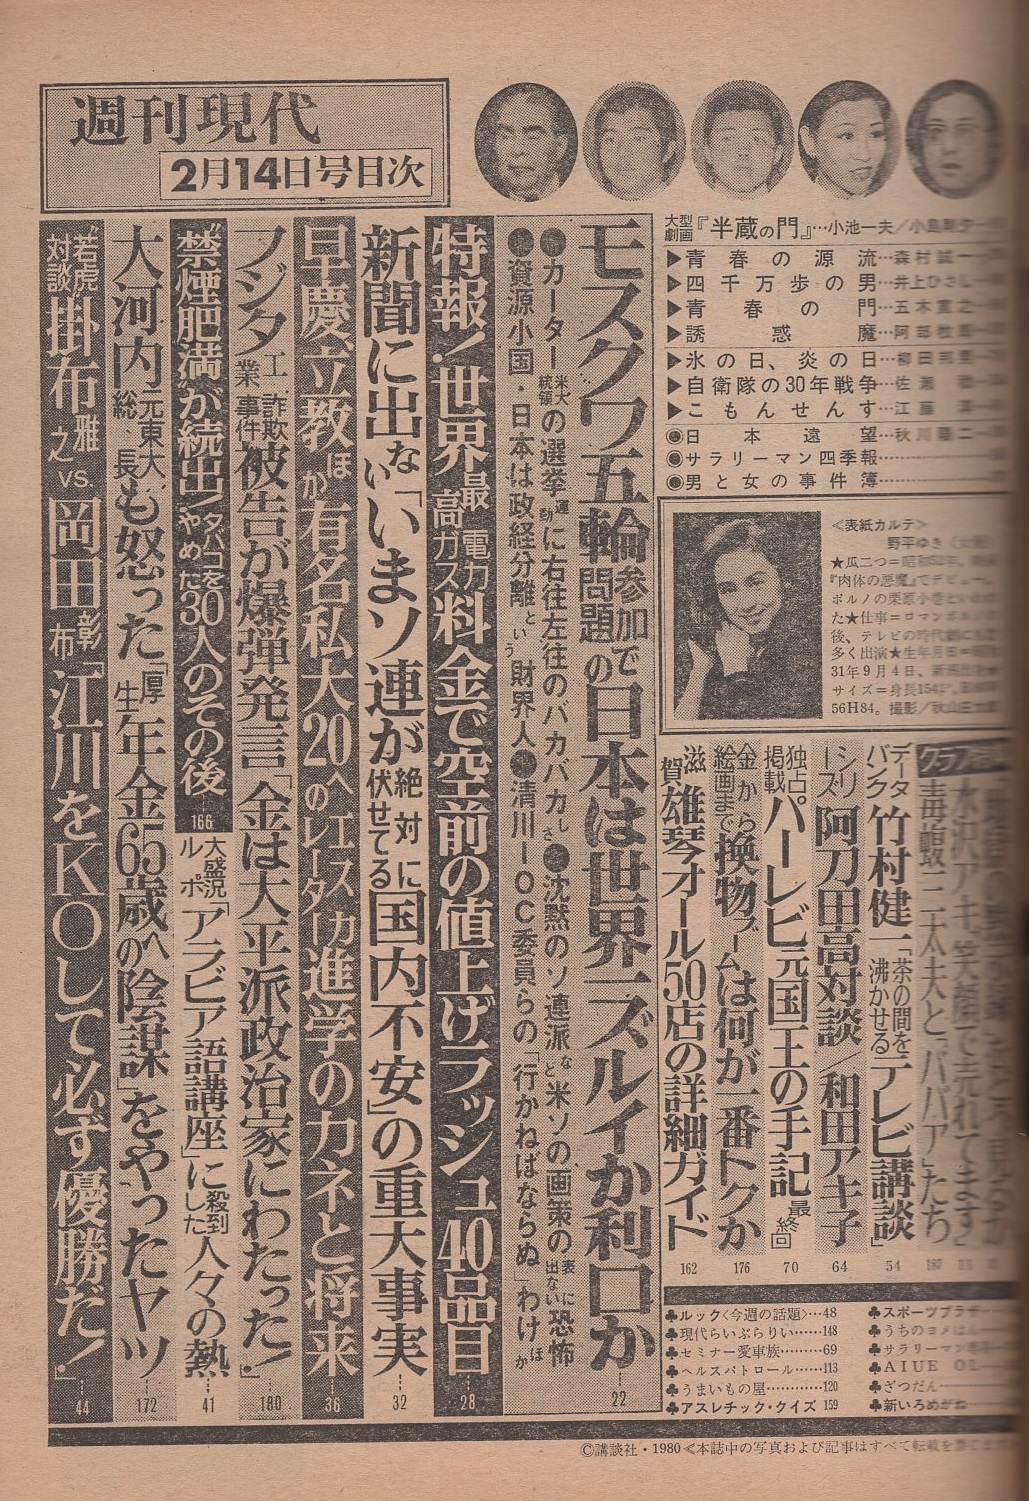 週刊現代
2月14日号目次
大型劇画『半蔵の門』…小池一夫／小島剛夕
▶青春の源流…森村誠一
▶四千万歩の男…井上ひさし
▶青春の門…五木寛之
▶誘惑魔…阿部牧郎
▶氷の日、炎の日…柳田邦男
▶自衛隊の30年戦争…佐瀬稔
▶こもんせんす…江藤淳
●日本遠望…秋川陽二
●サラリーマン四季報
●男と女の事件簿
＜表紙カルテ＞
野平ゆき
★瓜二つ＝昭和52年、
『肉体の悪魔』でデビュー。
ポルノの栗原小巻といわれ
た★仕事＝ロマンポルノ
後、テレビの時代劇に
多く出演★生年月日＝
31年9月4日、新潟
サイズ＝身長154㌢、
56H84。撮影／秋山庄太郎
グラフ
水沢アキ「笑顔で売れてます」
毒蝮三太夫と「ババア」たち 187
データバンク 竹村健一「茶の間を沸かせる「テレビ講談」 54
シリーズ 阿刀田高対談／和田アキ子 64
独占掲載 パーレビ元国王の手記 最終回 70
金から絵画まで換物ブームは何が一番トクか 176
滋賀雄琴オール50店の詳細ガイド 162
モスクワ五輪参加問題で日本は世界一ズルイか利口か 22
●カーター米大統領の選挙運動に右往左往のバカバカしさ●沈黙のソ連派など米ソの画策の表に出ない恐怖
●資源小国・日本は政経分離という財界人●清川IOC委員らの「行かねばならぬ」わけほか
特報！世界最高電力ガス料金で空前の値上げラッシュ40品目 28
新聞に出ない「いまソ連が絶対に伏せてる国内不安」の重大事実 32
早慶立教ほか有名私大20へエスカレーター進学のカネと将来 36
ノジタ工業詐欺事件被告が爆弾発言「金は大平派政治家にわたった！」 180
“禁煙肥満”が続出！タバコをやめた30人のその後 166
大盛況ルポ「アラビア語講座」に殺到した人々の熱 41
大河内元東大総長も怒った「厚生年金65歳への陰謀」をやったヤツ 172
“若虎”対談 掛布雅之vs.岡田彰布「江川をKOして必ず優勝だ！」 44
♣ルック＜今週の話題＞…48
♣現代らいぶらりい……148
♣セミナー愛車族………69
♣ヘルスパトロール……113
♣うまいもの屋…………120
♣アスレチック・クイズ 159
♣スポーツプラザ
♣うちのヨメはん
♣サラリーマン
♣AIUEOL
♣ざつだん
♣新いろめがね
©講談社・1980≪本誌中の写真および記事はすべて転載を禁じます